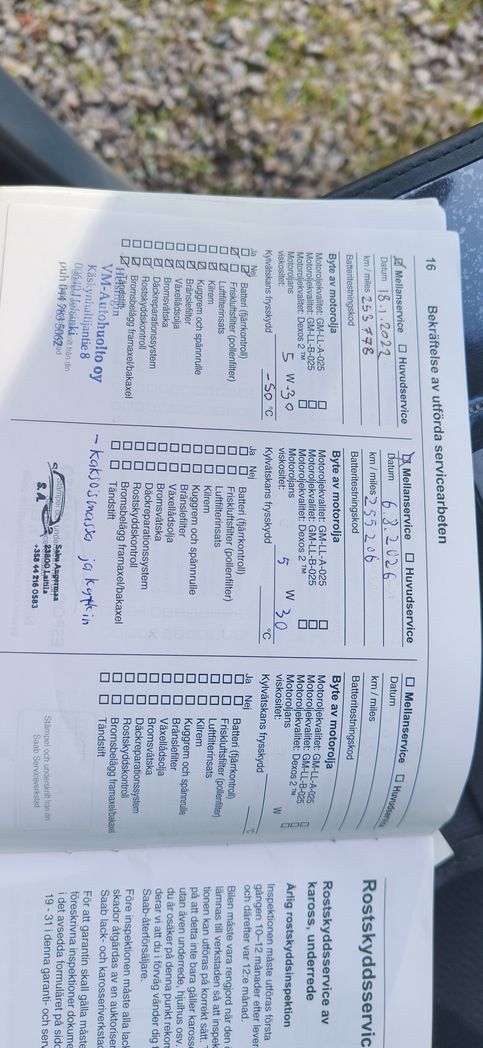 16
Bekräftelse av utförda servicearbeten
☒ Mellanservice ☐ Huvudservice
Datum 18.1.2022
km / miles 253 778
Batteritestningskod
Byte av motorolja
Motoroljekvalitet: GM-LL-A-025 ☐
Motoroljekvalitet: GM-LL-B-025 ☐
Motoroljekvalitet: Dexos 2™ ☐
Motoroljans
viskositet: 5 W 30
Kylvätskans frysskydd -50 °C
Ja Nej
Batteri (fjärrkontroll)
Friskluftsfilter (pollenfilter)
Luftfilterinsats
Kilrem
Kuggrem och spännrulle
Bränslefilter
Växellådsolja
Bromsvätska
Däckreparationssystem
Rostskyddskontroll
Bromsbelägg framaxel/bakaxel
Tändstift
VM-Autohuolto oy
Käskynhaltijantie 8
puh 044 763 5062
☒ Mellanservice ☐ Huvudservice
Datum 6.8.2026
km / miles 255 206
Batteritestningskod
Byte av motorolja
Motoroljekvalitet: GM-LL-A-025 ☐
Motoroljekvalitet: GM-LL-B-025
Motoroljekvalitet: Dexos 2™ ☐
Motoroljans
viskositet: 5 W 30
Kylvätskans frysskydd °C
Ja Nej
Batteri (fjärrkontroll)
Friskluftsfilter (pollenfilter)
Luftfilterinsats
Kilrem
Kuggrem och spännrulle
Bränslefilter
Växellådsolja
Bromsvätska
Däckreparationssystem
Rostskyddskontroll
Bromsbelägg framaxel/bakaxel
Tändstift
- kaksoismassa ja kytkin
S.A.
Saku Augermaa
23800 Laitila
+358 44 216 0583
☐ Mellanservice ☐ Huvudservice
Datum
km / miles
Batteritestningskod
Byte av motorolja
Motoroljekvalitet: GM-LL-A-025
Motoroljekvalitet: GM-LL-B-025
Motoroljekvalitet: Dexos 2™
Motoroljans
viskositet: W
Kylvätskans frysskydd °C
Ja Nej
Batteri (fjärrkontroll)
Friskluftsfilter (pollenfilter)
Luftfilterinsats
Kilrem
Kuggrem och spännrulle
Bränslefilter
Växellådsolja
Bromsvätska
Däckreparationssystem
Rostskyddskontroll
Bromsbelägg framaxel/bakaxel
Tändstift
Stämpel och underskrift från din
Saab Serviceverkstad
Rostskyddsservic
Rostskyddsservice av
kaross, underrede
Årlig rostskyddsinspektion
Inspektionen måste utföras första
gången 10–12 månader efter lever
och därefter var 12:e månad.
Bilen måste vara rengjord när den
lämnas till verkstaden så att inspek
tionen kan utföras på korrekt sätt.
på att detta inte bara gäller kaross
utan även underrede, hjulhus osv.
du är osäker på denna punkt rekom
derar vi att du i förväg vänder dig t
Saab-återförsäljare.
Före inspektionen måste alla lack
skador åtgärdas av en auktoriser
Saab lack- och karosseriverkstad
För att garantin skall gälla måste
föreskrivna inspektioner dokume
i det avsedda formuläret på sid
19 - 31 i denna garanti- och serv